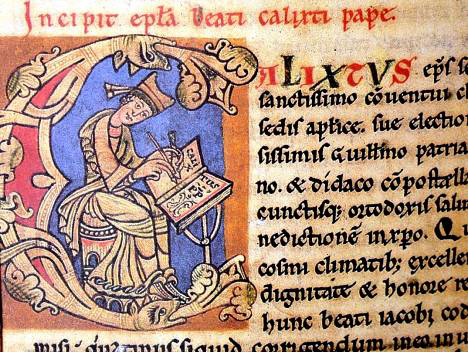 Incipit epła beati calixti pape.
ALIXTVS ep̄s se
sanctissimo cōventui cl
sedis aplice. sue election
sissimis Guillīmo patria
no. & didaco cōpostella
cunctisq; ortodoxis salu
nedictionē in xp̄o. Qu
cosmi climatib; excellen
dignitate & honore re
hunc beati iacobi cod
corrigendum in eo inu